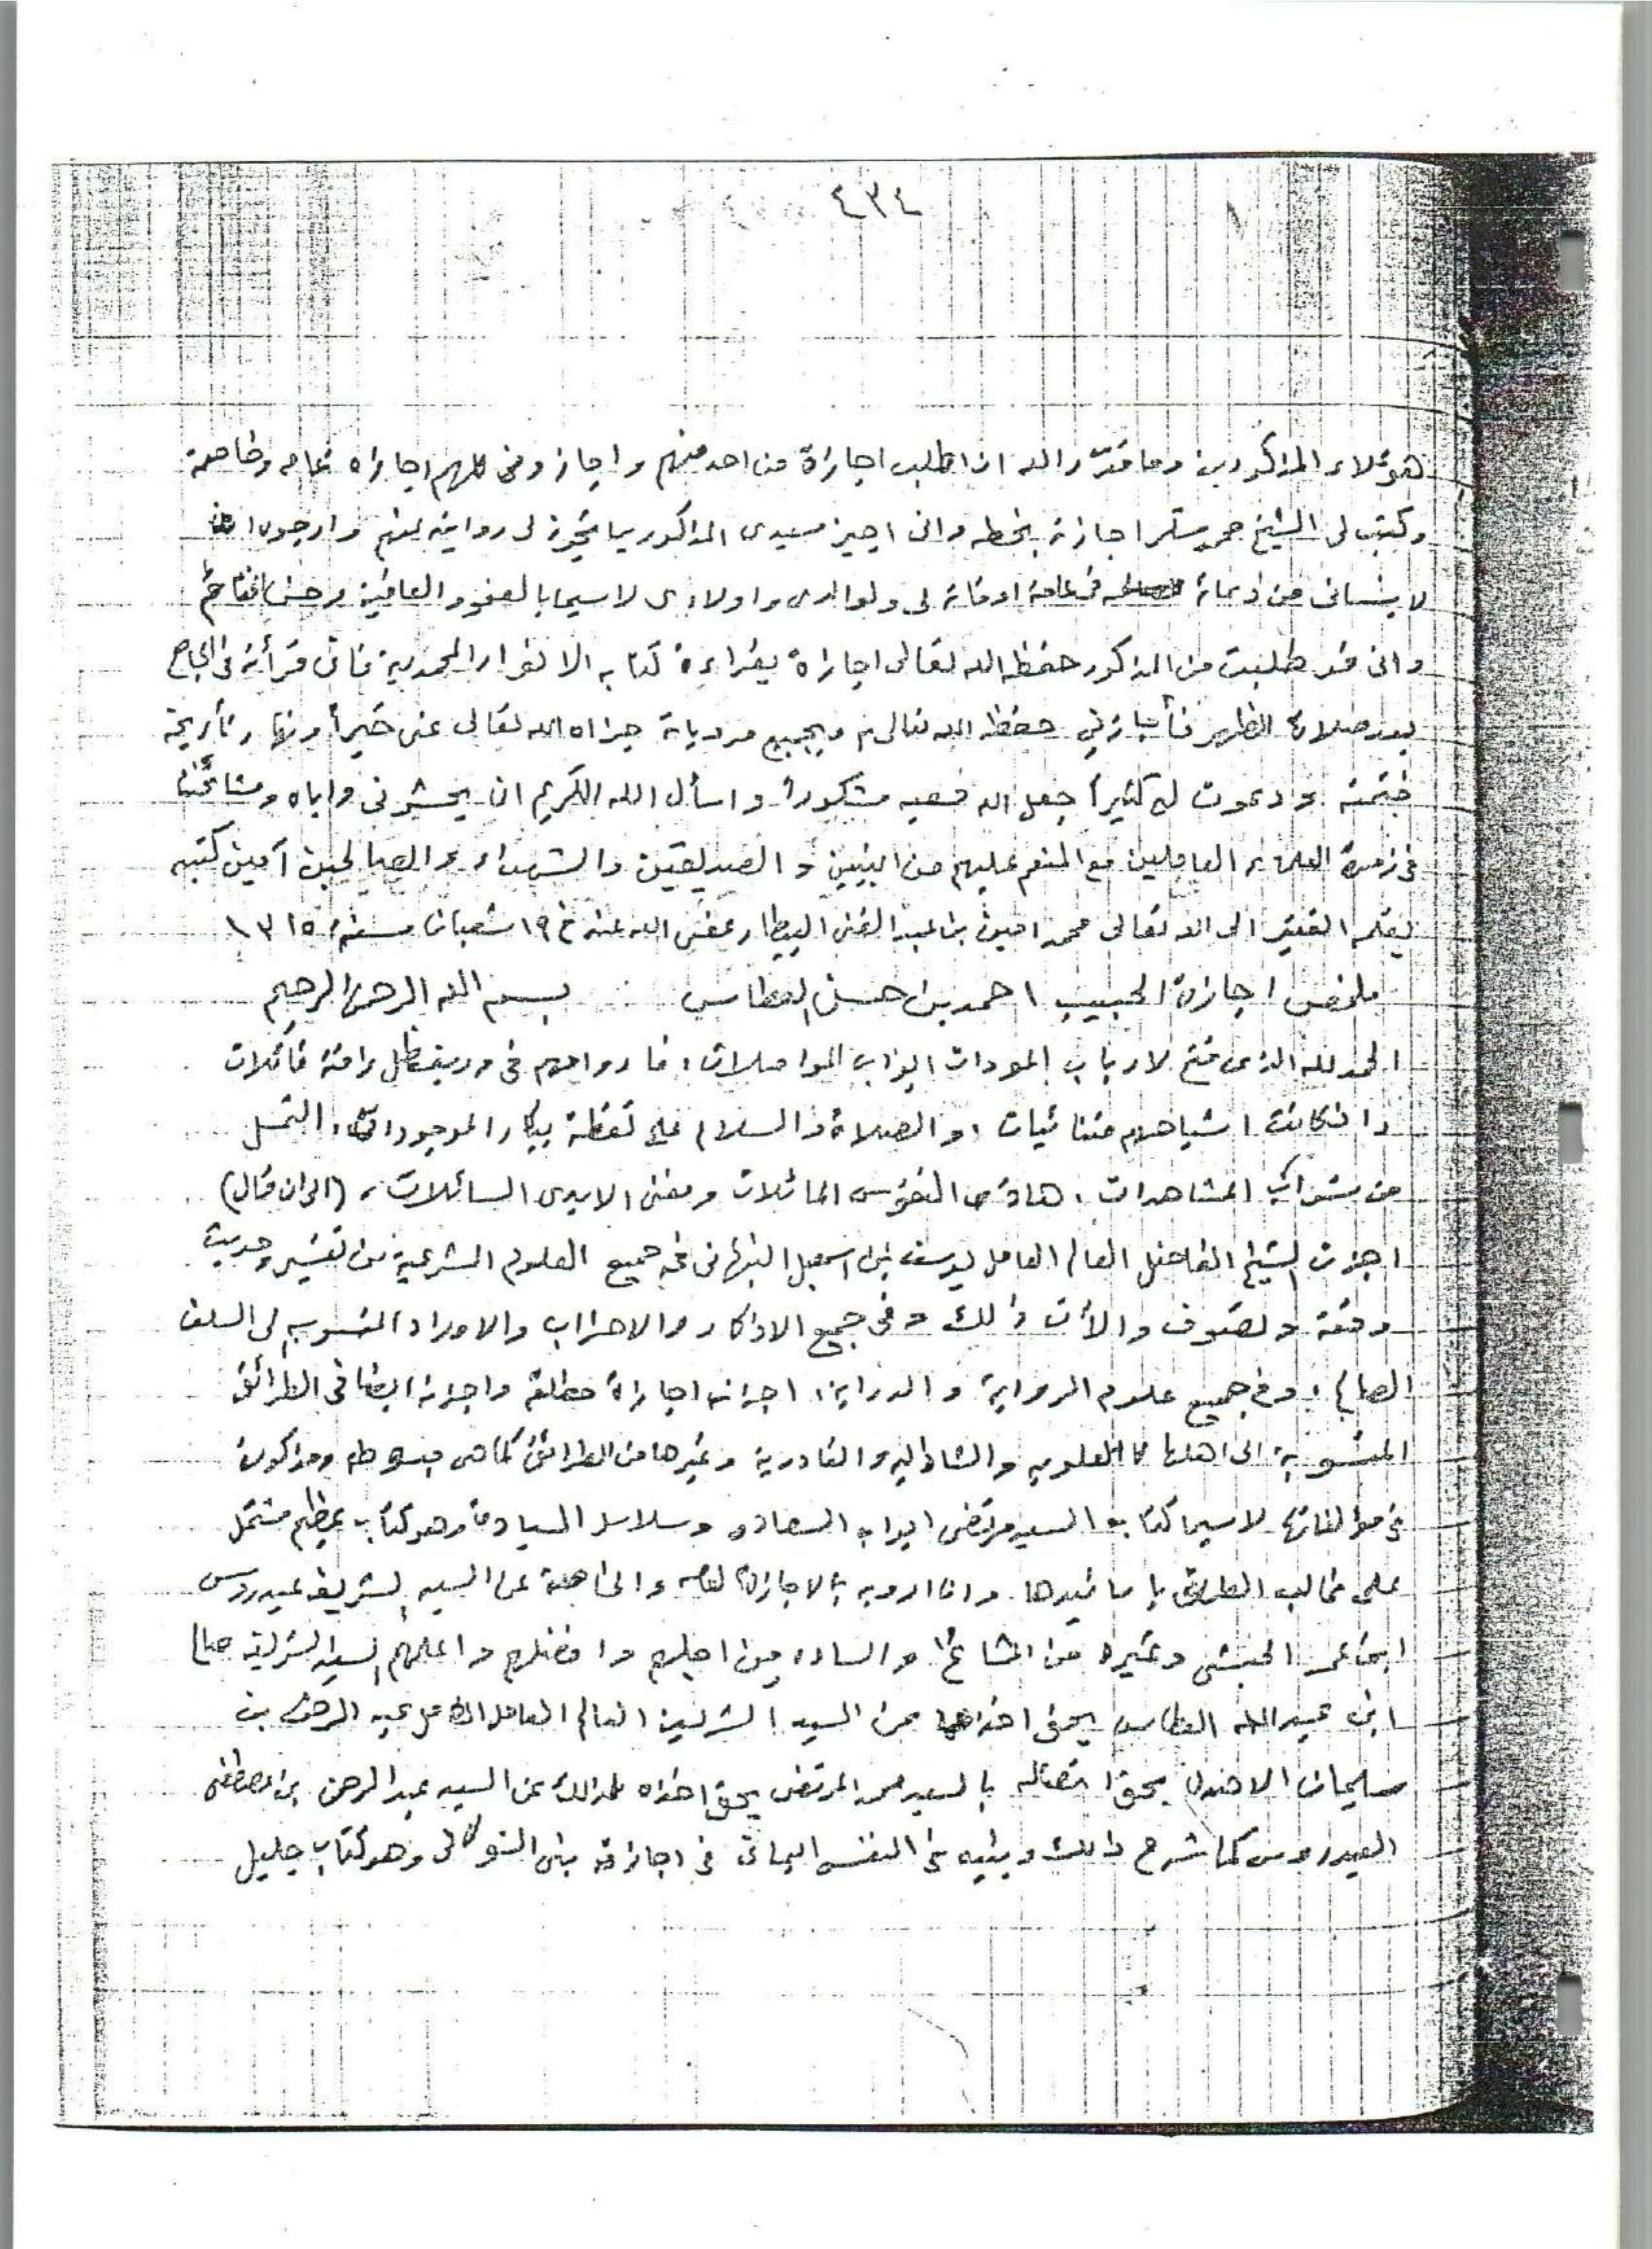 ٤٣٤
هؤلاء المذكورين وما قدّر الله اذا طلب اجازة من احد منهم واجازوني كلهم اجازه عامه وخاصة
وكتب لي الشيخ اجازة بخطه واني اجيز سيدي المذكور بما تجوز لي روايته عنهم وارجوه ان
لا ينساني من دعائه في عامة اوقاته لي ولوالدي واولادي لا سيما بالعفو والعافية وحسن الختام
واني قد طلبت من المذكور حفظه الله تعالى اجازة بقراءة كتابه الانوار المحمدية فاني قرأته في الجامع
بعد صلاة الظهر فأجازني حفظه الله تعالى به وبجميع مروياته جزاه الله تعالى عني خيراً وتأريخه
ختمته ودعوت له كثيراً جعل الله سعيه مشكوراً واسأل الله الكريم ان يحشرني واياه ومشائخنا
في زمرة العلماء العاملين مع المنعم عليهم من النبيين والصديقين والشهداء والصالحين آمين كتبه
بقلمه الفقير الى الله تعالى محمد امين بن عبد الغني البيطار عفي الله عنه في ١٩ شعبان سنة ١٣١٥
ملخص اجازة الحبيب احمد بن حسن العطاس بسم الله الرحمن الرحيم
الحمد لله الذي فتح لارباب المودات ابواب المواصلات، فارواحهم في وريف ظل رافته قائلات
وان كانت اشباحهم متنائيات، والصلاة والسلام على نقطة بيكار الموجودات، الثمل
من شراب المشاهدات، هادي النفوس المائلات ومغني الايدي السائلات، (الى ان قال)
اجزت الشيخ الفاضل العالم العامل يوسف بن اسمعيل النبهاني في جميع العلوم الشرعية من تفسير وحديث
وفقه وتصوف وآلات ذلك وفي جميع الاذكار والاحزاب والاوراد المنسوبه لى السلف
الصالح، وفي جميع علوم الرواية والدراية، اجزته اجازة مطلقة واجزته ايضا في الطرائق
المنسوبة الى اهلها كالعلويه والشاذليه والقادرية وغيرها من الطرائق كما هي مبسوطه ومذكورة
في مؤلفاتها لا سيما كتاب السيد مرتضى ابواب السعاده وسلاسل السيادة وهو كتاب عظيم مشتمل
على غالب الطرق باسانيدها وانا ارويه بالاجازة العامه والخاصة عن السيد الشريف عيدروس
ابن عمر الحبشي وغيره من المشائخ والساده ومن اجلهم وافضلهم واعلمهم السيد الشريف صالح
ابن عبد الله العطاس بحق اخذه عن السيد الشريف العالم العامل الكامل عبد الرحمن بن
سليمان الاهدل بحق اتصاله بالسيد محمد المرتضى بحق اخذه لذلك عن السيد عبد الرحمن بن مصطفى
العيدروس كما شرح ذلك وبينه في النفس اليماني في اجازة بني الشوكاني وهو كتاب جليل